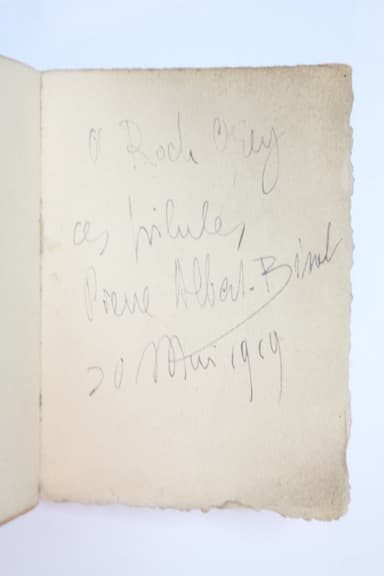 A Roch Grey
ces pilules
Pierre Albert-Birot
20 Mai 1919